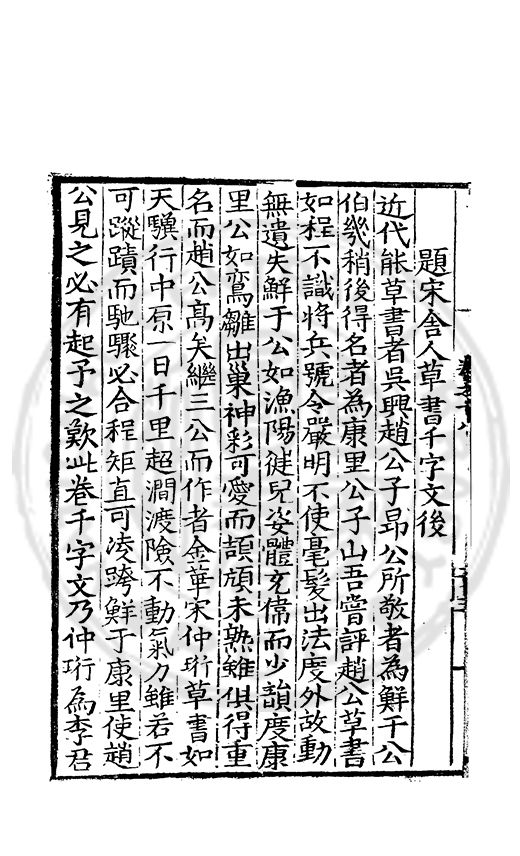 題宋舎人草書千字文後
近代能草書者吳興趙公子昂公所敬者為鮮于公
伯㡬稍後得名者為康里公子山吾甞評趙公草書
如程不識將兵號令嚴明不使毫髮出法度外故動
無遺失鮮于公如漁陽健兒姿體充偉而少韻度康
里公如鸞雛出巢神彩可愛而頡頏未熟雖俱得重
名而趙公髙矣繼三公而作者金華宋仲珩草書如
天驥行中原一日千里超澗渡險不動氣力雖若不
可蹤蹟而馳驟必合程矩直可凌跨鮮于康里使趙
公見之必有起予之歎此卷千字文乃仲珩為李君